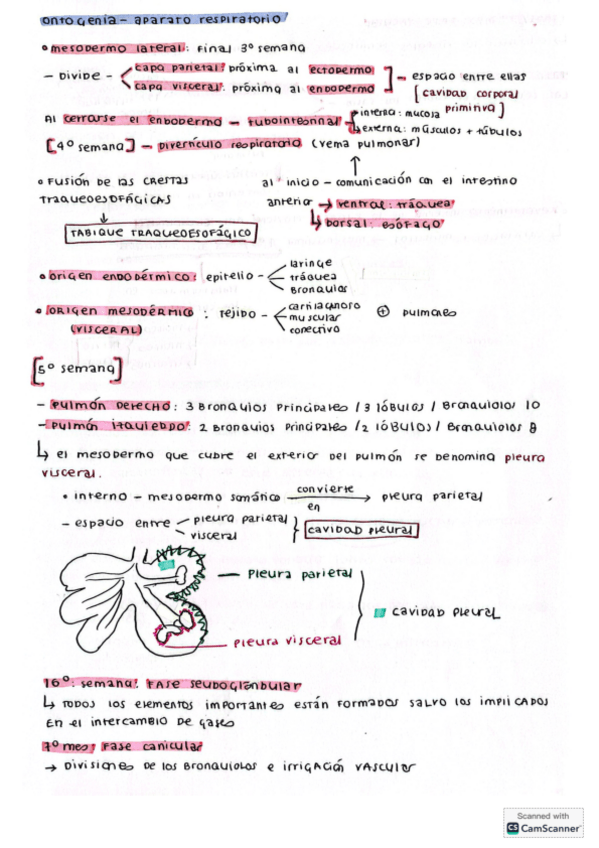 ontogenia - aparato respiratorio
• mesodermo lateral: final 3º semana
- Divide - capa parietal: próxima al ectodermo - espacio entre ellas
capa visceral: próxima al endodermo [cavidad corporal priminva]
Al cerrarse el endodermo - tubointestinal - interna: mucosa
externa: músculos + túbulos
[4º semana] - Divertículo respiratorio (yema pulmonar)
• Fusión de las crestas traqueoesofágicas
al inicio - comunicación con el intestino
anterior → ventral: tráquea
↳ Dorsal: esófago
TABIQUE TRAQUEOESOFÁGICO
• origen endodérmico: epitelio - laringe
tráquea
Bronquios
• ORIGEN mesodérmico (VISCERAL) : Tejido - cartilaginoso
muscular
conectivo
⊕ pulmones
[5º semana]
- Pulmón Derecho: 3 Bronquios principales / 3 lóbulos / Bronquiolos 10
- Pulmón izquierdo: 2 Bronquios principales / 2 lóbulos / Bronquiolos 8
↳ el mesodermo que cubre el exterior del pulmón se denomina pleura
visceral.
• interno - mesodermo somático convierte en → pleura parietal
- espacio entre pleura parietal
visceral } cavidad pleural
Pleura parietal
cavidad pleural
pleura visceral
16º: semana: FASE seudoglándular
↳ TODOS los elementos importantes están formados salvo los implicados
en el intercambio de gases
7º mes: Fase canicular
→ Divisiones de los Bronquiolos e irrigación vascular
Scanned with
CS CamScanner